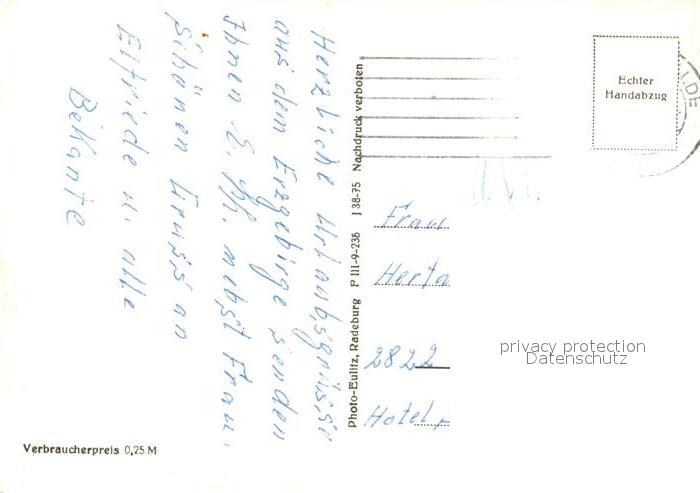 Herzliche Urlaubsgrüsse
aus dem Erzgebirge senden
Ihnen nebst Frau.
Schönen Gruss an
Elfriede u. alle
Bekante
Photo-Eulitz, Radeburg P III-9-236 J 38-75 Nachdruck verboten
Echter
Handabzug
LDE
Frau
Herta
2822
Hotel
privacy protection
Datenschutz
Verbraucherpreis 0,25 M